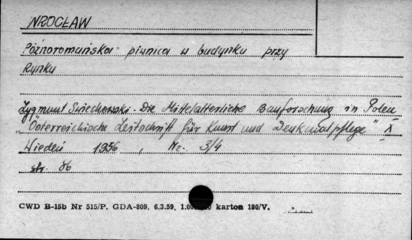 WROCŁAW
Późnoromańska piwnica w budynku przy
Rynku
Zygmunt Świechowski - Die Mittelalterliche Bauforschung in Polen
"Österreichische Zeitschrift für Kunst und Denkmalpflege" X
Wiedeń 1956, Nr. 3/4
str. 86
CWD B-15b Nr 515/P. GDA-809. 6.3.59, 1.000.000 karton 180/V.